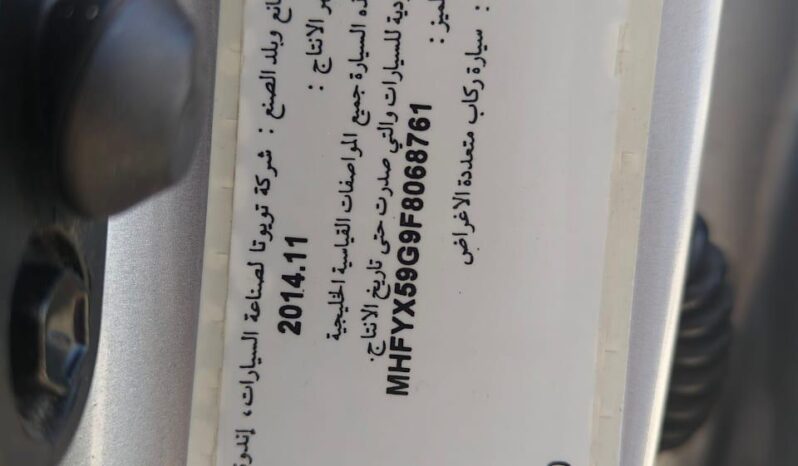 انع وبلد الصنع : شركة تويوتا لصناعة السيارات، إندون
ر الانتاج : 2014.11
ذه السيارة جميع المواصفات القياسية الخليجية
ودية للسيارات والتي صدرت حتى تاريخ الانتاج.
ميز : MHFYX59G9F8068761
: سيارة ركاب متعددة الاغراض